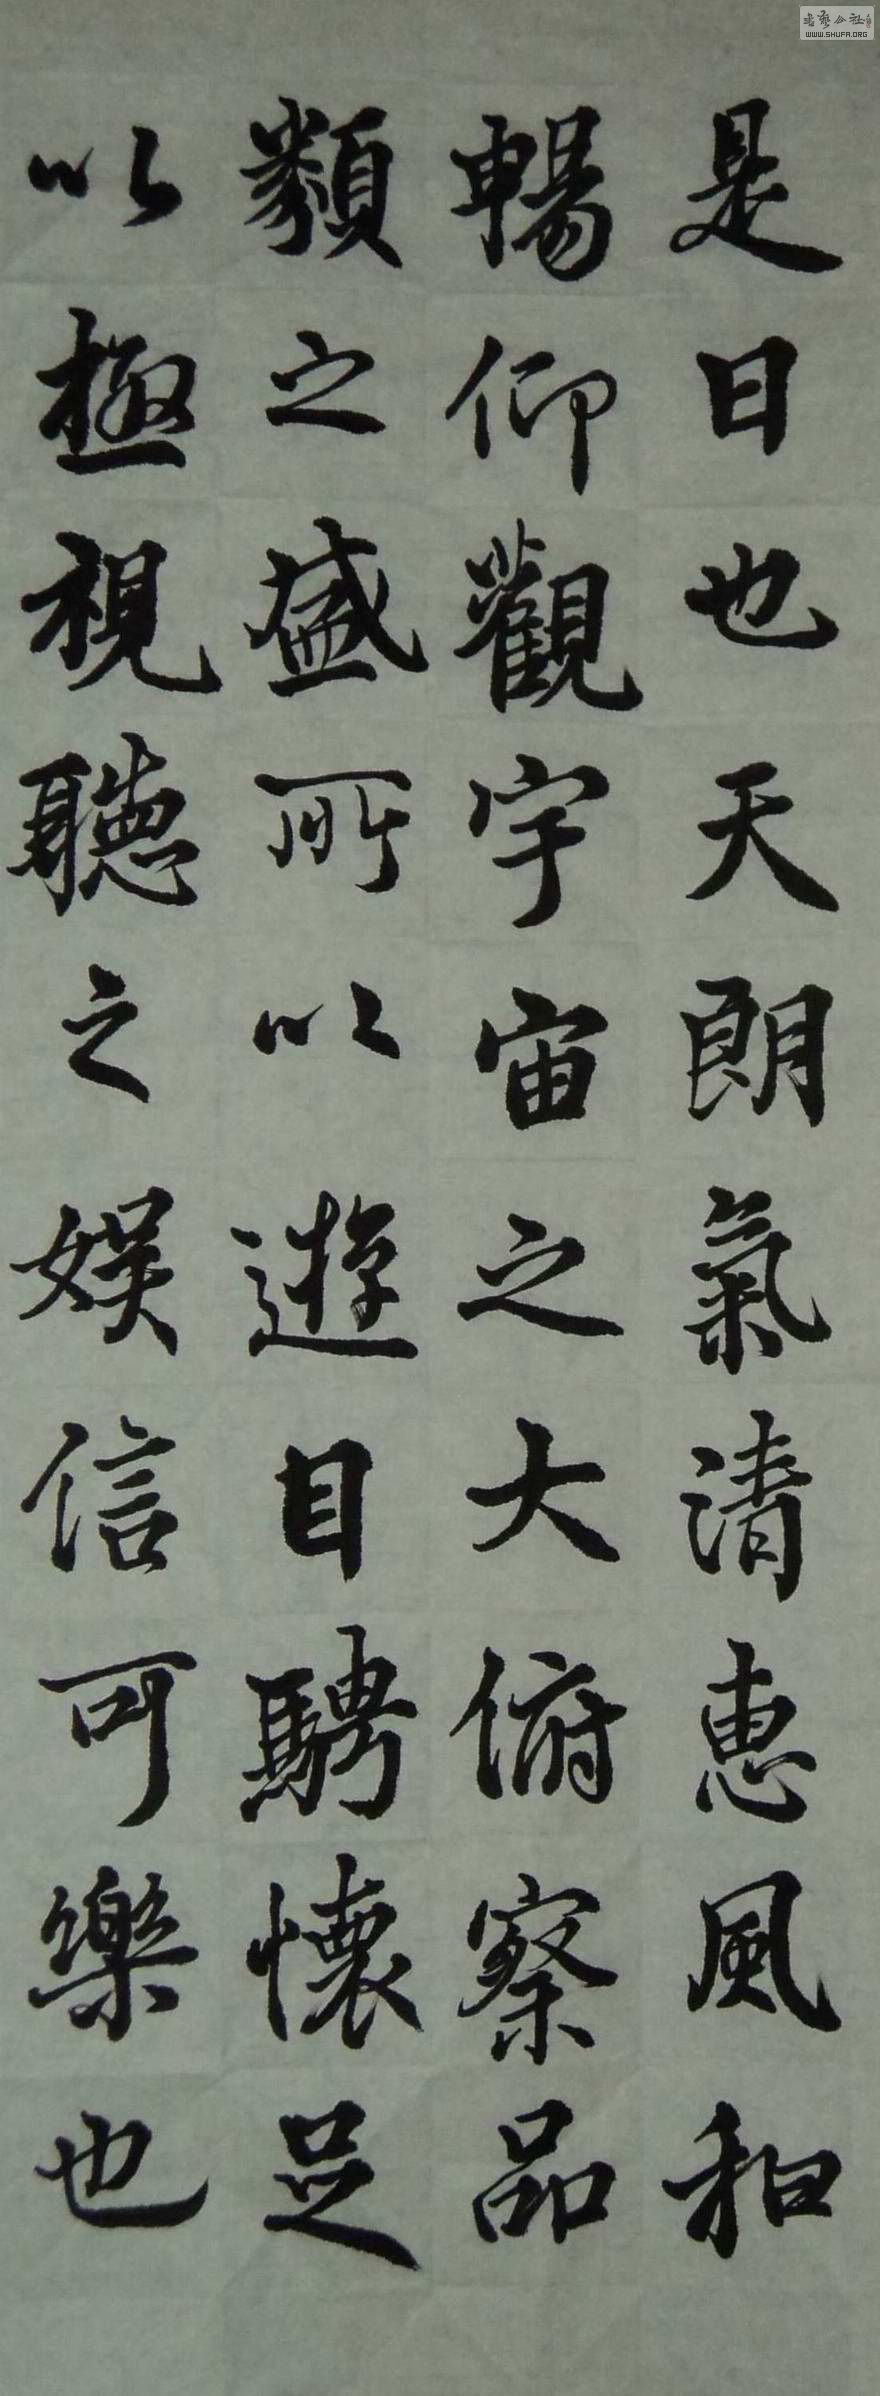 是日也天朗氣清惠風和
暢仰觀宇宙之大俯察品
類之盛所以遊目騁懷足
以極視聽之娛信可樂也
書藝公社
WWW.SHUFA.ORG